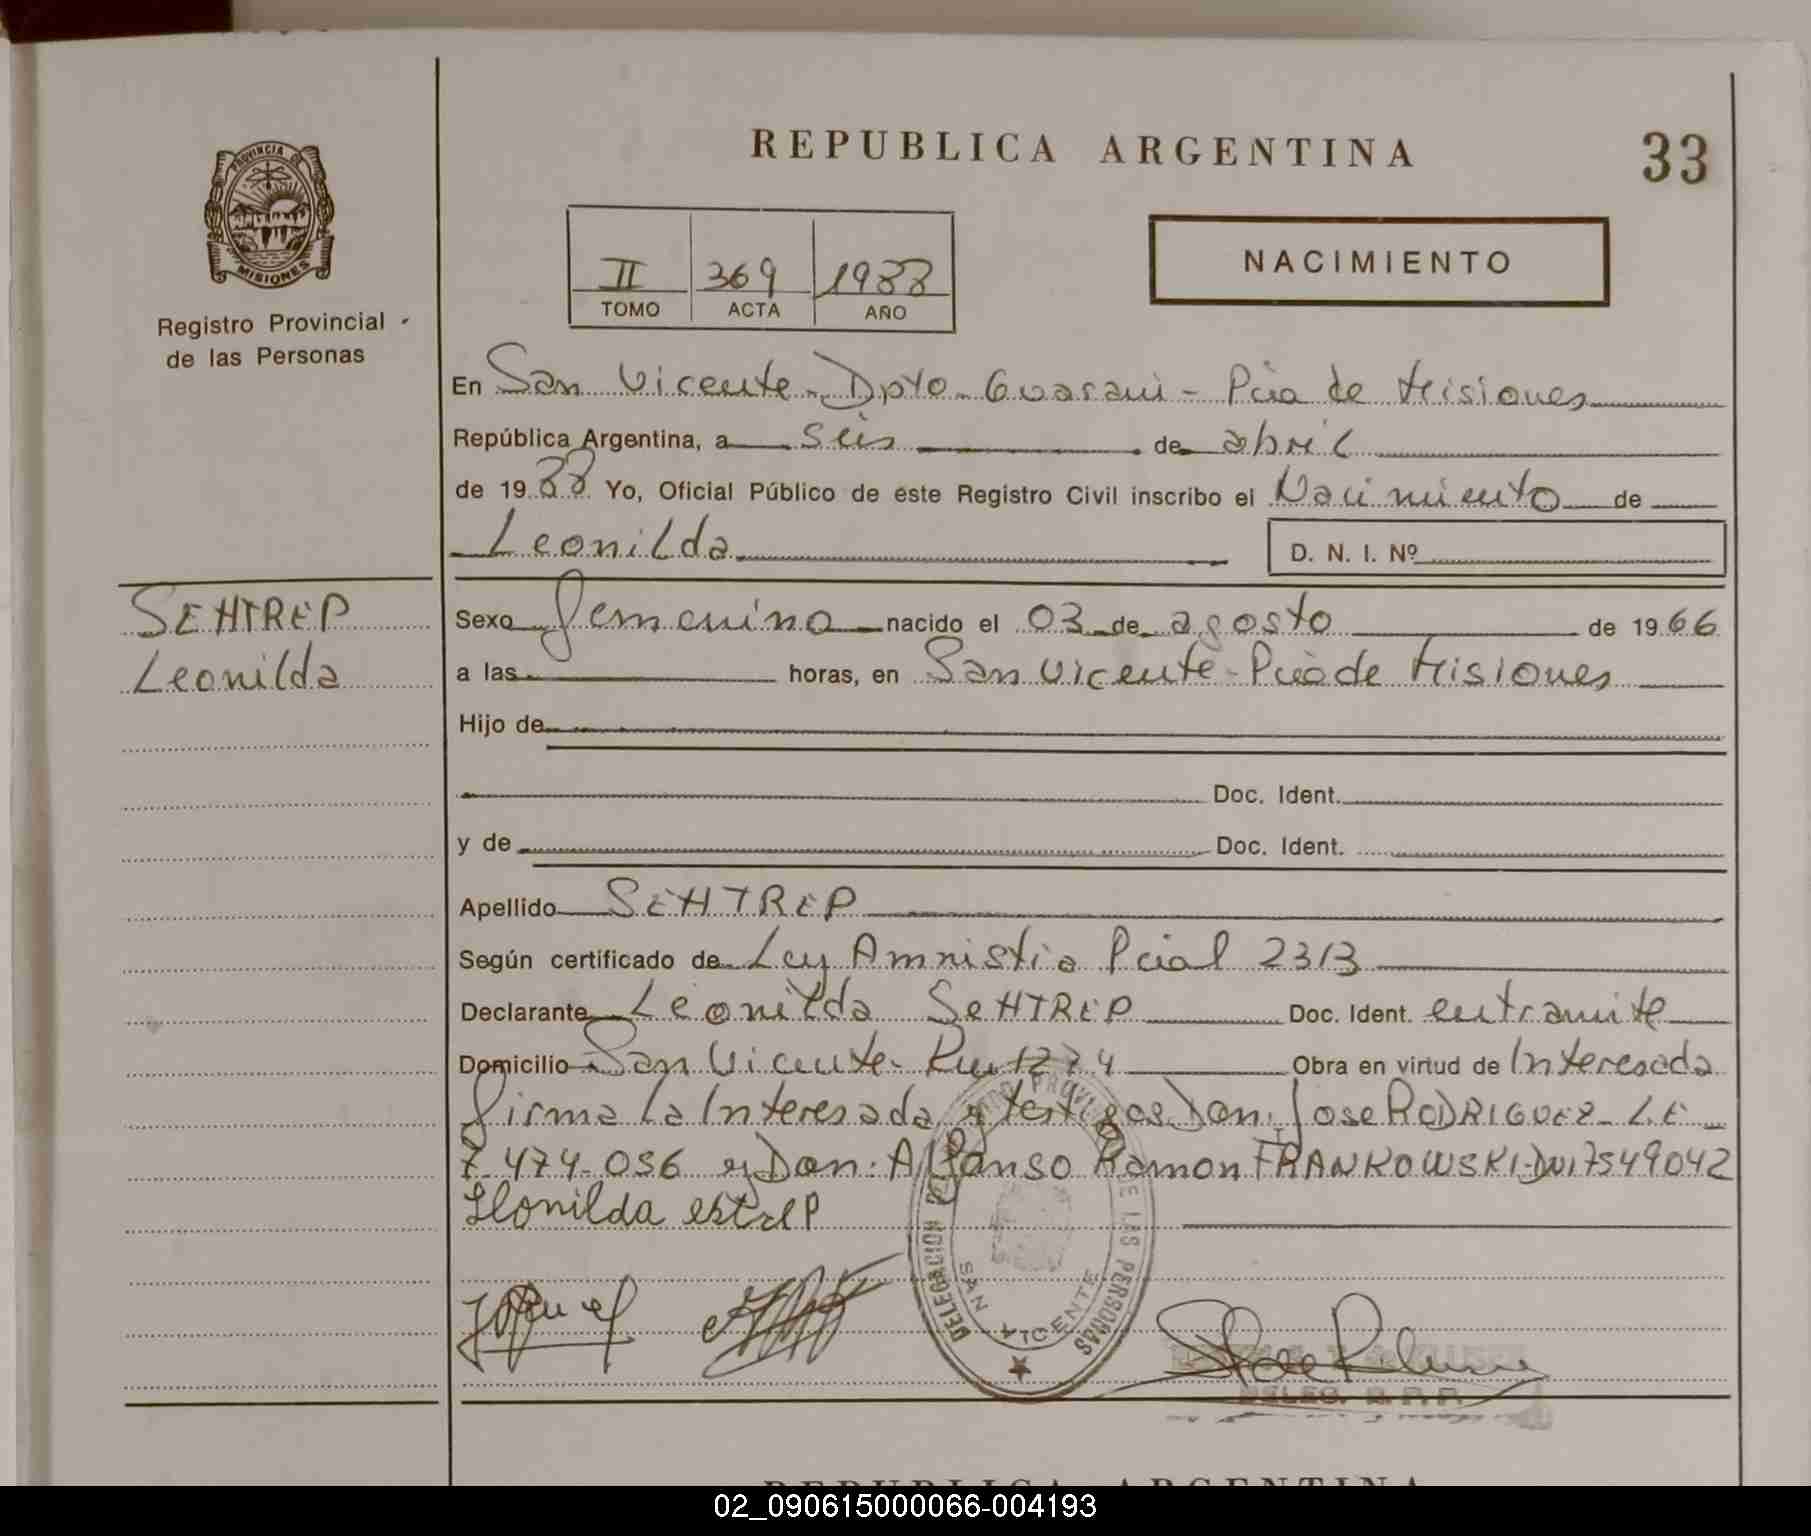 REPUBLICA ARGENTINA
33
PROVINCIA DE
MISIONES
Registro Provincial
de las Personas
II 369 1988
TOMO ACTA AÑO
NACIMIENTO
En San Vicente - Dpto - Guarani - Pcia de Misiones
República Argentina, a seis de abril
de 19 88 Yo, Oficial Público de este Registro Civil inscribo el Nacimiento de
Leonilda
D. N. I. Nº
SEHTREP
Leonilda
Sexo femenino nacido el 03 de agosto de 19 66
a las horas, en San Vicente - Pcia de Misiones
Hijo de
Doc. Ident.
y de Doc. Ident.
Apellido SEHTREP
Según certificado de Ley Amnistia Pcial 2313
Declarante Leonilda SEHTREP Doc. Ident. en tramite
Domicilio San Vicente - Km 1274 Obra en virtud de Interesada
firma la Interesada y testigos Don: Jose RODRIGUEZ - L.E
7.474.056 y Don: Alfonso Ramon FRANKOWSKI - DNI 7549042
Llonilda estrep
DELEGACION REGISTRO PROVINCIAL DE LAS PERSONAS
SAN VICENTE
DELEG. R.P.P.
REPUBLICA ARGENTINA
02_090615000066-004193